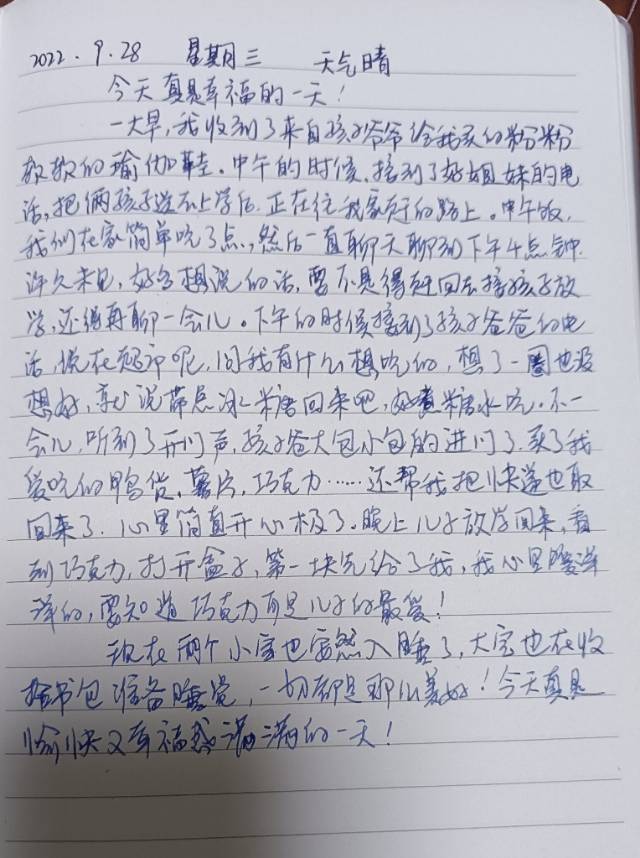 2022.9.28 星期三 天气晴
今天真是幸福的一天！
一大早，我收到了来自孩子爷爷给我买的粉粉
嫩嫩的瑜伽鞋。中午的时候，接到了好姐妹的电
话，把俩孩子送去上学后，正在往我家赶的路上。中午饭，
我们在家简单吃了点，然后一直聊天聊到下午4点钟.
许久未见，好多想说的话，要不是得赶回去接孩子放
学，还得再聊一会儿。下午的时候接到了孩子爸爸的电
话，说在超市呢，问我有什么想吃的，想了一圈也没
想好，就说带点冰糖回来吧，好煮糖水吃。不一
会儿，听到了开门声，孩子爸大包小包的进门了，买了我
爱吃的鸭货，薯片，巧克力……还帮我把快递也取
回来了。心里简直开心极了。晚上儿子放学回来，看
到巧克力，打开盒子，第一块先给了我，我心里暖洋
洋的，要知道巧克力可是儿子的最爱！
现在两个小宝也安然入睡了，大宝也在收
拾书包准备睡觉，一切都是那么美好！今天真是
愉快又幸福满满的一天！